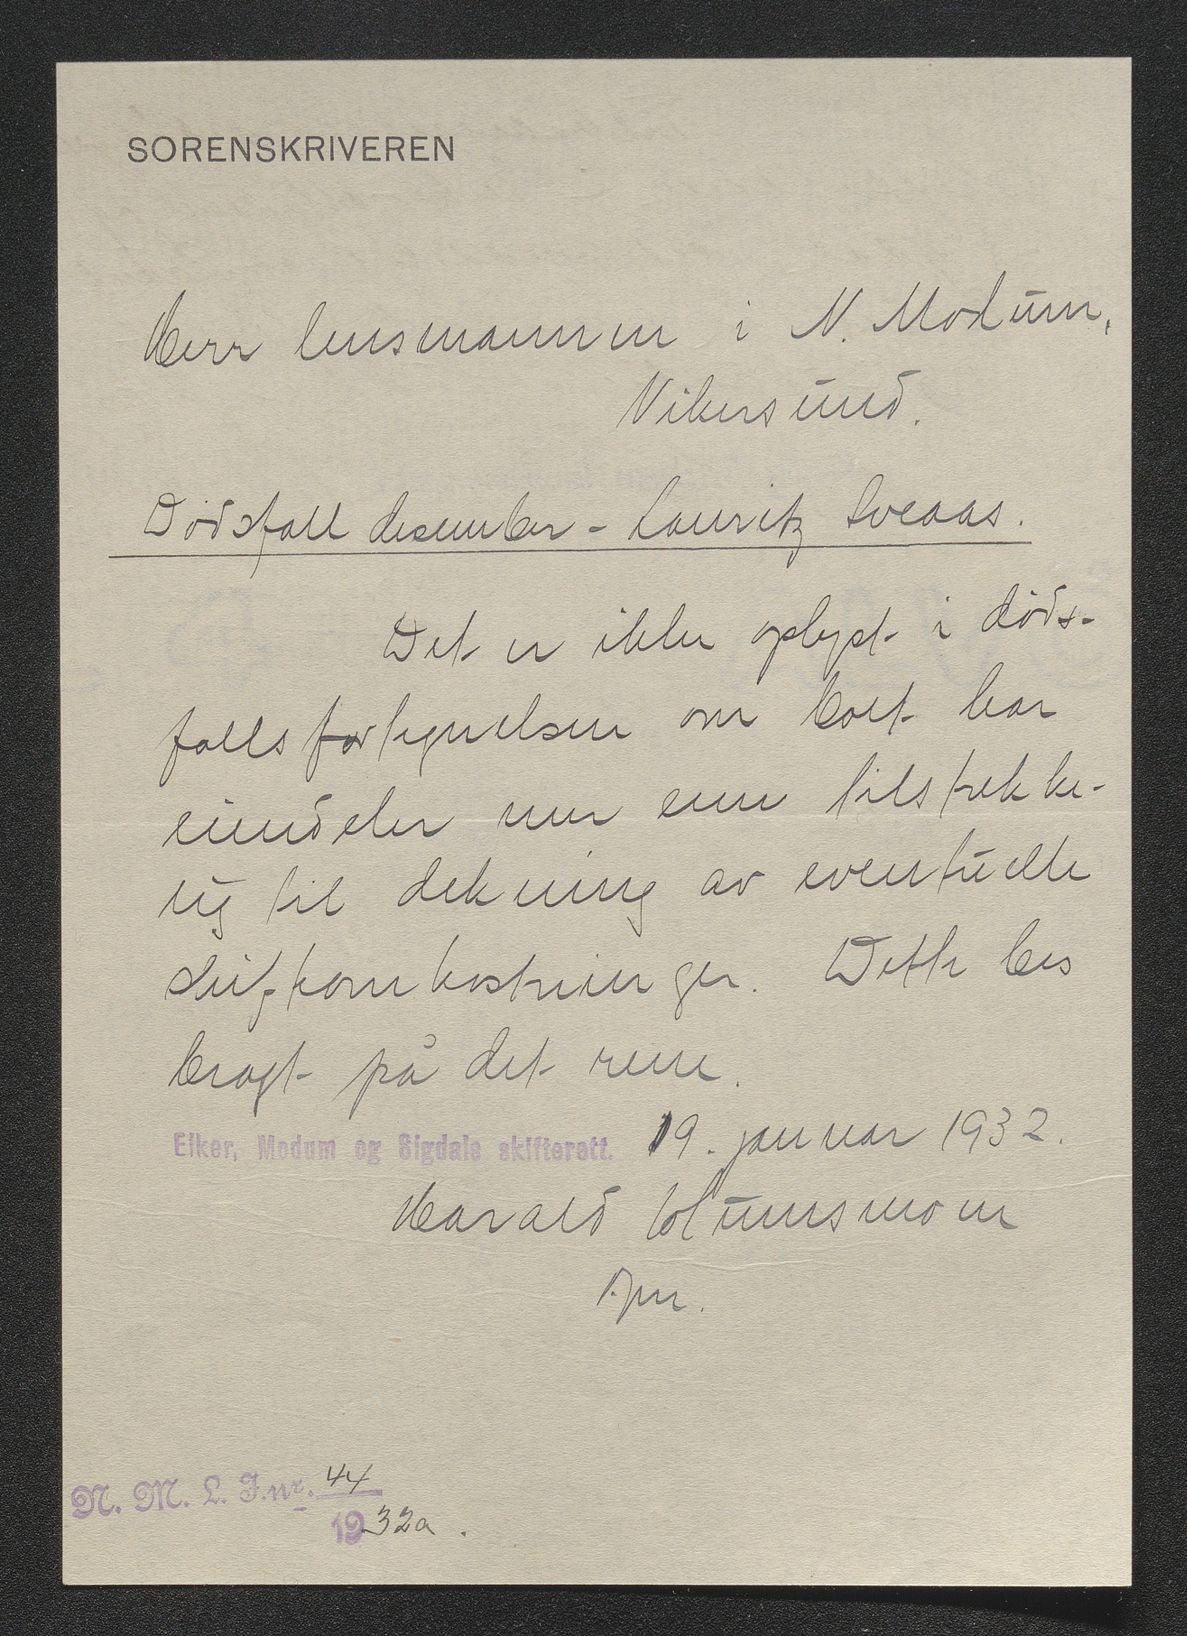 SORENSKRIVEREN
Herr lensmannen i N. Modum,
Vikersund.
Dødsfall desember - Lauritz Sveaas.
Det er ikke oplyst i døds-
falls fortegnelsen om boet har
eiendeler mer enn tilstrekke-
lig til dekning av eventuelle
skifteomkostninger. Dette bes
bragt på det rene.
Eiker, Modum og Sigdals skifterett. 19. januar 1932.
Harald
N. M. L. J.nr. 44
1932a.